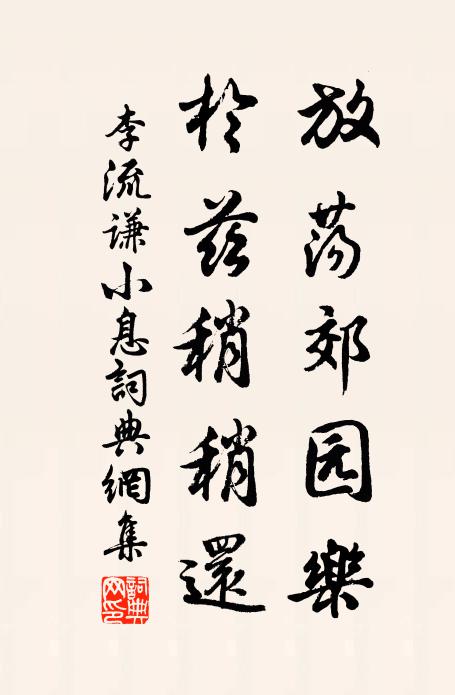 放荡郊园樂
於茲稍稍還
李流谦小息詞典網集
詞典